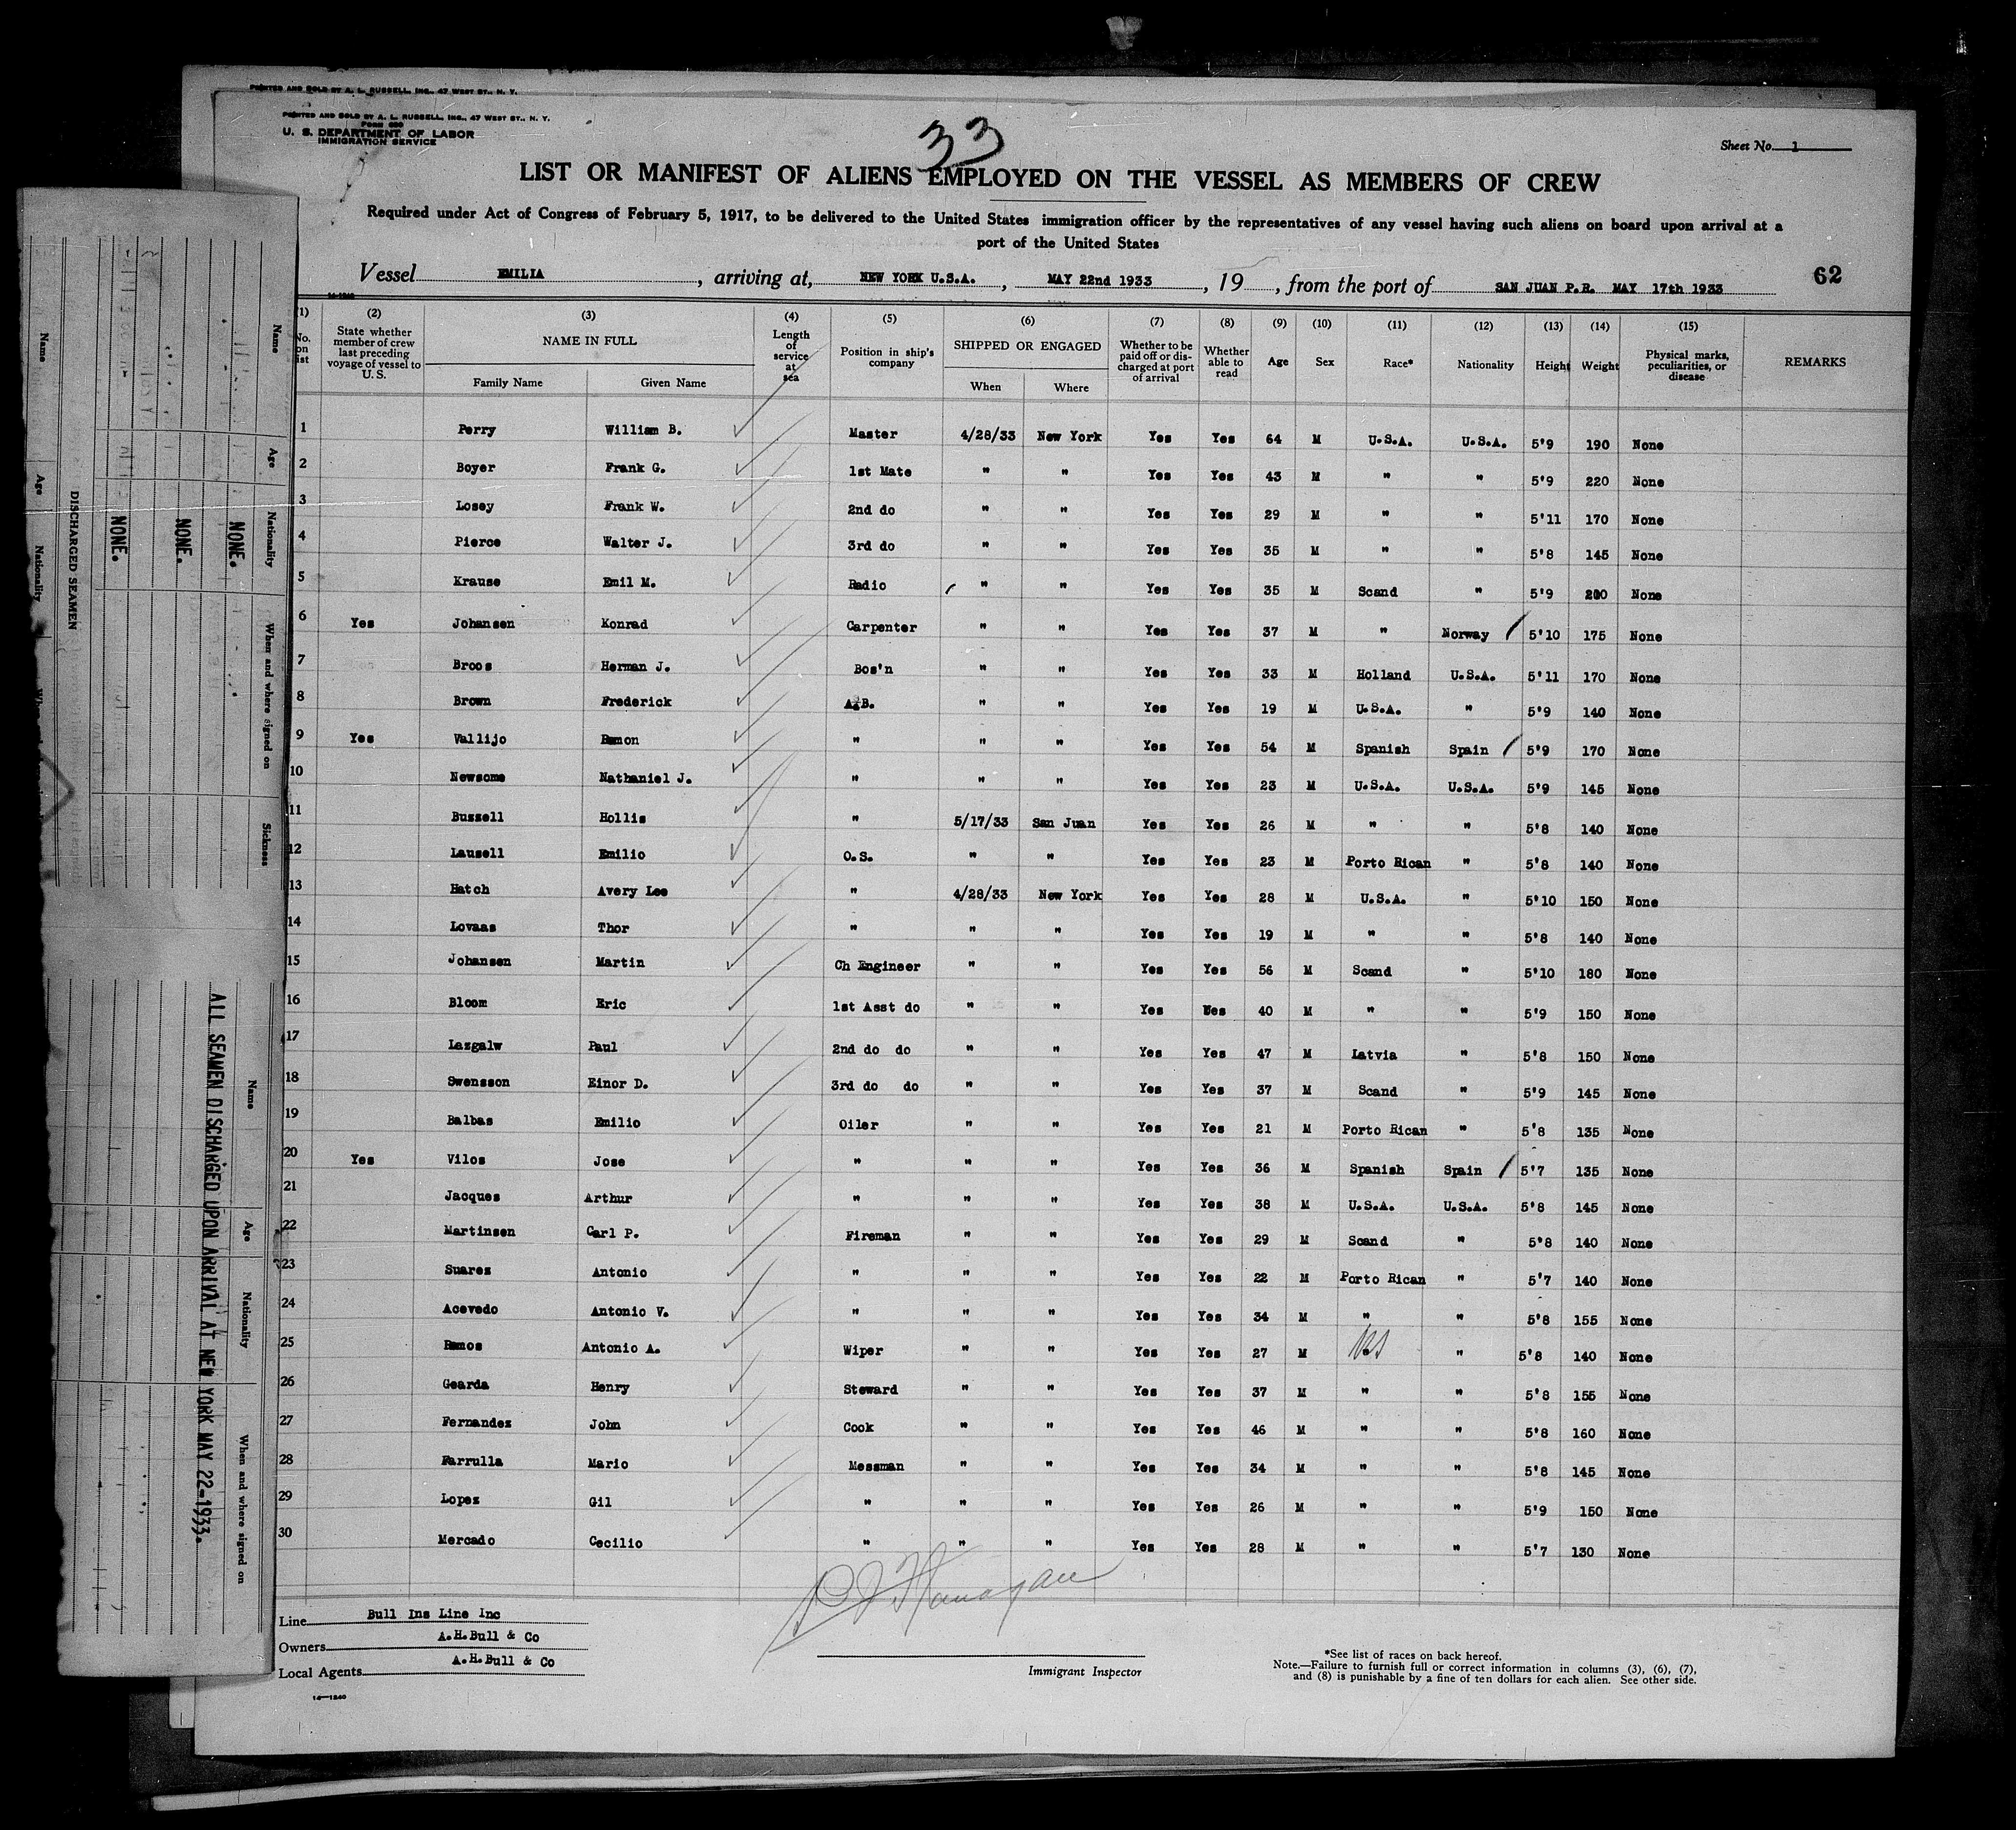 PRINTED AND SOLD BY A. L. RUSSELL, INC., 47 WEST ST., N. Y.
PRINTED AND SOLD BY A. L. RUSSELL, INC., 47 WEST ST., N. Y.
Form 680
U. S. DEPARTMENT OF LABOR
IMMIGRATION SERVICE
33
Sheet No. 1
LIST OR MANIFEST OF ALIENS EMPLOYED ON THE VESSEL AS MEMBERS OF CREW
Required under Act of Congress of February 5, 1917, to be delivered to the United States immigration officer by the representatives of any vessel having such aliens on board upon arrival at a
port of the United States
Vessel EMILIA, arriving at, NEW YORK U.S.A., MAY 22nd 1933, 19 , from the port of SAN JUAN P.R. MAY 17th 1933 62
14-1240
(1) No. on list (2) State whether member of crew last preceding voyage of vessel to U. S. (3) NAME IN FULL Family Name Given Name (4) Length of service at sea (5) Position in ship's company (6) SHIPPED OR ENGAGED When Where (7) Whether to be paid off or discharged at port of arrival (8) Whether able to read (9) Age (10) Sex (11) Race* (12) Nationality (13) Height (14) Weight (15) Physical marks, peculiarities, or disease REMARKS
1 Perry William B. Master 4/28/33 New York Yes Yes 64 M U.S.A. U.S.A. 5'9 190 None
2 Boyer Frank G. 1st Mate " " Yes Yes 43 M " " 5'9 220 None
3 Losey Frank W. 2nd do " " Yes Yes 29 M " " 5'11 170 None
4 Pierce Walter J. 3rd do " " Yes Yes 35 M " " 5'8 145 None
5 Krause Emil M. Radio " " Yes Yes 35 M Scand " 5'9 200 None
6 Yes Johansen Konrad Carpenter " " Yes Yes 37 M " Norway 5'10 175 None
7 Broos Herman J. Bos'n " " Yes Yes 33 M Holland U.S.A. 5'11 170 None
8 Brown Frederick A.B. " " Yes Yes 19 M U.S.A. " 5'9 140 None
9 Yes Vallijo Ramon " " " Yes Yes 54 M Spanish Spain 5'9 170 None
10 Newsome Nathaniel J. " " " Yes Yes 23 M U.S.A. U.S.A. 5'9 145 None
11 Buzzell Hollis " 5/17/33 San Juan Yes Yes 26 M " " 5'8 140 None
12 Lausell Emilio O.S. " " Yes Yes 23 M Porto Rican " 5'8 140 None
13 Hatch Avery Lee " 4/28/33 New York Yes Yes 28 M U.S.A. " 5'10 150 None
14 Lovaas Thor " " " Yes Yes 19 M " " 5'8 140 None
15 Johansen Martin Ch Engineer " " Yes Yes 56 M Scand " 5'10 180 None
16 Bloom Eric 1st Asst do " " Yes Yes 40 M " " 5'9 150 None
17 Lazgalw Paul 2nd do do " " Yes Yes 47 M Latvia " 5'8 150 None
18 Swensson Einor D. 3rd do do " " Yes Yes 37 M Scand " 5'9 145 None
19 Balbas Emilio Oiler " " Yes Yes 21 M Porto Rican " 5'8 135 None
20 Yes Vilos Jose " " " Yes Yes 36 M Spanish Spain 5'7 135 None
21 Jacques Arthur " " " Yes Yes 38 M U.S.A. U.S.A. 5'8 145 None
22 Martinsen Carl P. Fireman " " Yes Yes 29 M Scand " 5'8 140 None
23 Suarez Antonio " " " Yes Yes 22 M Porto Rican " 5'7 140 None
24 Acevedo Antonio V. " " " Yes Yes 34 M " " 5'8 155 None
25 Ramos Antonio A. Wiper " " Yes Yes 27 M " 5'8 140 None
26 Gearda Henry Steward " " Yes Yes 37 M " " 5'8 155 None
27 Fernandez John Cook " " Yes Yes 46 M " " 5'8 160 None
28 Farrulla Mario Messman " " Yes Yes 34 M " " 5'8 145 None
29 Lopez Gil " " " Yes Yes 26 M " " 5'9 150 None
30 Mercado Cecilio " " " Yes Yes 28 M " " 5'7 130 None
Line Bull Ins Line Inc
Owners A.H.Bull & Co
Local Agents A.H.Bull & Co
14-1240
Flanagan
Immigrant Inspector
*See list of races on back hereof.
Note.—Failure to furnish full or correct information in columns (3), (6), (7),
and (8) is punishable by a fine of ten dollars for each alien. See other side.
Name Age Nationality When and where signed on Sickness
NONE.
NONE.
NONE.
DISCHARGED SEAMEN
Name Age Nationality
Name Age Nationality When and where signed on
ALL SEAMEN DISCHARGED UPON ARRIVAL AT NEW YORK MAY 22-1933.